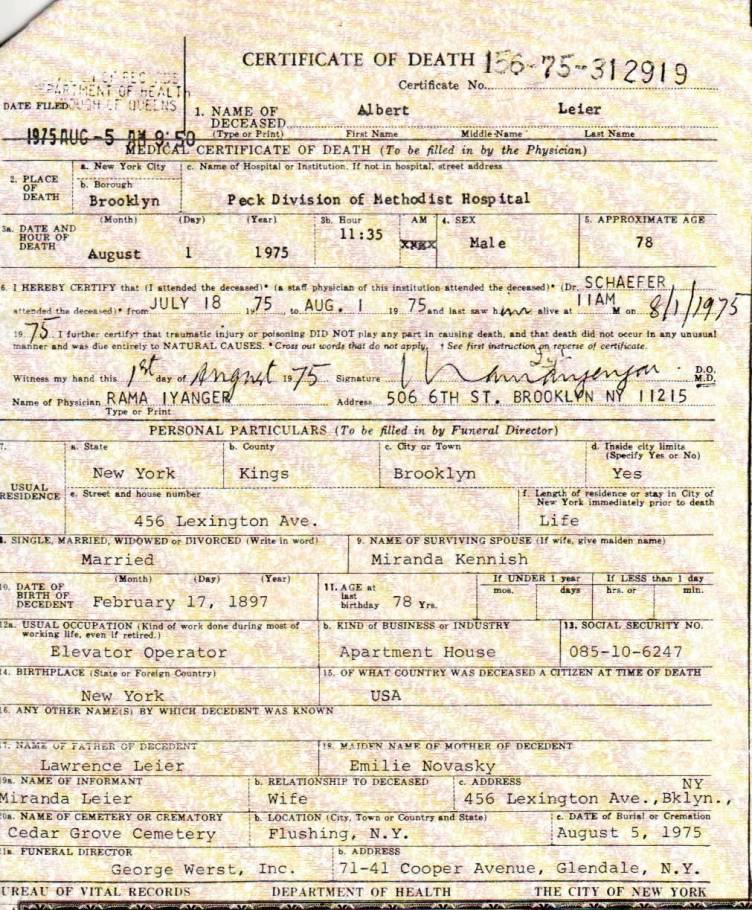 CERTIFICATE OF DEATH 156-75-312919
Certificate No.
DEPARTMENT OF HEALTH
DATE FILED BOROUGH OF QUEENS
1975 AUG -5 AM 9:50
1. NAME OF DECEASED Albert Leier
(Type or Print) First Name Middle Name Last Name
MEDICAL CERTIFICATE OF DEATH (To be filled in by the Physician)
2. PLACE OF DEATH
a. New York City c. Name of Hospital or Institution. If not in hospital, street address
b. Borough
Brooklyn Peck Division of Methodist Hospital
3a. DATE AND HOUR OF DEATH (Month) (Day) (Year) 3b. Hour AM 4. SEX 5. APPROXIMATE AGE
August 1 1975 11:35 Male 78
6. I HEREBY CERTIFY that (I attended the deceased)* (a staff physician of this institution attended the deceased)* (Dr. SCHAEFER
attended the deceased)* from JULY 18 1975, to AUG. 1 1975 and last saw him alive at 11AM M on 8/1/1975
1975. I further certify† that traumatic injury or poisoning DID NOT play any part in causing death, and that death did not occur in any unusual
manner and was due entirely to NATURAL CAUSES. *Cross out words that do not apply. † See first instruction on reverse of certificate.
Witness my hand this 1st day of August 1975 Signature D.O. M.D.
Name of Physician RAMA IYANGER Address 506 6TH ST. BROOKLYN NY 11215
Type or Print
PERSONAL PARTICULARS (To be filled in by Funeral Director)
7. USUAL RESIDENCE
a. State b. County c. City or Town d. Inside city limits (Specify Yes or No)
New York Kings Brooklyn Yes
e. Street and house number f. Length of residence or stay in City of New York immediately prior to death
456 Lexington Ave. Life
8. SINGLE, MARRIED, WIDOWED or DIVORCED (Write in word) 9. NAME OF SURVIVING SPOUSE (If wife, give maiden name)
Married Miranda Kennish
10. DATE OF BIRTH OF DECEDENT (Month) (Day) (Year) 11. AGE at last birthday If UNDER 1 year mos. days If LESS than 1 day hrs. or min.
February 17, 1897 78 Yrs.
12a. USUAL OCCUPATION (Kind of work done during most of working life, even if retired.) b. KIND of BUSINESS or INDUSTRY 13. SOCIAL SECURITY NO.
Elevator Operator Apartment House 085-10-6247
14. BIRTHPLACE (State or Foreign Country) 15. OF WHAT COUNTRY WAS DECEASED A CITIZEN AT TIME OF DEATH
New York USA
16. ANY OTHER NAME(S) BY WHICH DECEDENT WAS KNOWN
17. NAME OF FATHER OF DECEDENT 18. MAIDEN NAME OF MOTHER OF DECEDENT
Lawrence Leier Emilie Novasky
19a. NAME OF INFORMANT b. RELATIONSHIP TO DECEASED c. ADDRESS
Miranda Leier Wife 456 Lexington Ave., Bklyn., NY
20a. NAME OF CEMETERY OR CREMATORY b. LOCATION (City, Town or Country and State) c. DATE of Burial or Cremation
Cedar Grove Cemetery Flushing, N.Y. August 5, 1975
21a. FUNERAL DIRECTOR b. ADDRESS
George Werst, Inc. 71-41 Cooper Avenue, Glendale, N.Y.
BUREAU OF VITAL RECORDS DEPARTMENT OF HEALTH THE CITY OF NEW YORK